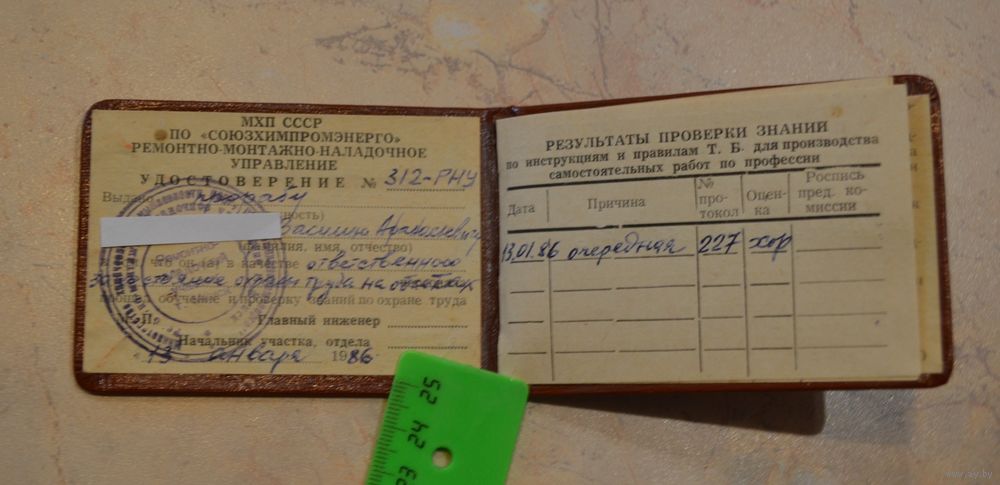 МХП СССР
ПО «СОЮЗХИМПРОМЭНЕРГО»
РЕМОНТНО-МОНТАЖНО-НАЛАДОЧНОЕ
УПРАВЛЕНИЕ
УДОСТОВЕРЕНИЕ № 312-РНУ
Выдано
Василию
(фамилия, имя, отчество)
что он(а) в качестве ответственного
за состояние охраны труда на объектах
прошел обучение и проверку знаний по охране труда
М.П. Главный инженер
Начальник участка, отдела
«13» января 1986
РЕЗУЛЬТАТЫ ПРОВЕРКИ ЗНАНИЙ
по инструкциям и правилам Т. Б. для производства
самостоятельных работ по профессии
Дата Причина № про-токол Оцен-ка Роспись пред. ко-миссии
13.01.86 очередная 227 хор
23 24 25